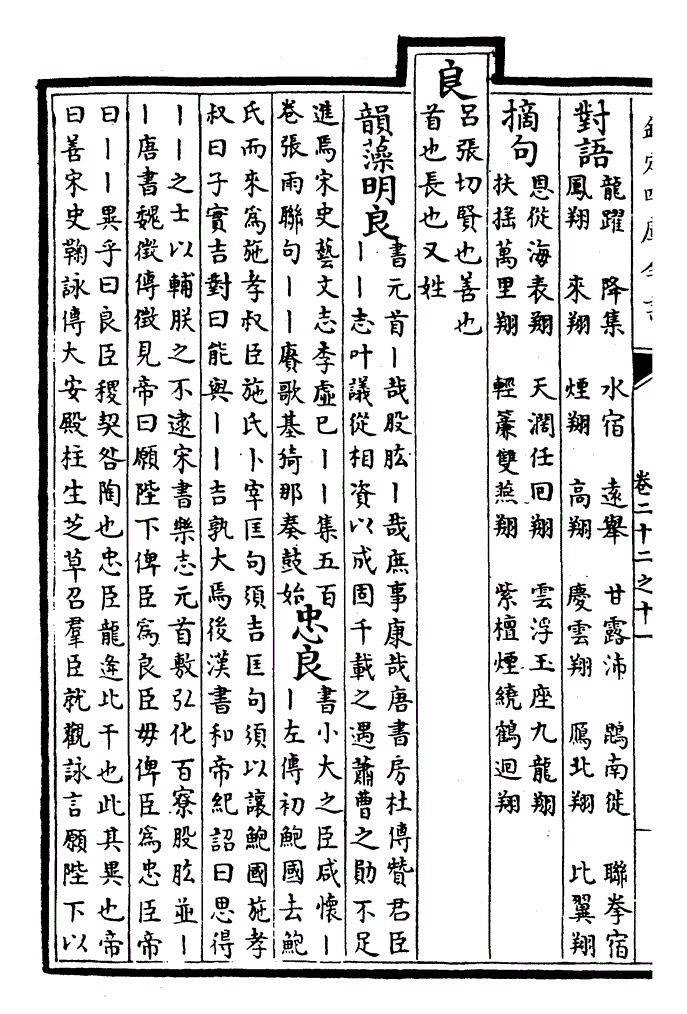 欽定四庫全書 卷二十二之十一
對語
龍躍 降集 水宿 遠舉 甘露沛 鵾南徙 聯拳宿
鳳翔 來翔 煙翔 高翔 慶雲翔 鴈北翔 比翼翔
摘句
恩從海表翔 天濶任回翔 雲浮玉座九龍翔
扶搖萬里翔 輕簾雙燕翔 紫檀煙繞鶴迴翔
良
呂張切賢也善也
首也長也又姓
韻藻明良
書元首丨哉股肱丨哉庶事康哉唐書房杜傳贊君臣
丨丨志叶議從相資以成固千載之遇蕭曹之勛不足
進焉宋史藝文志李虛已丨丨集五百
卷張雨聯句丨丨賡歌基猗那奏鼓始
忠良
書小大之臣咸懷丨
丨左傳初鮑國去鮑
氏而來為施孝叔臣施氏卜宰匡句須吉匡句須以讓鮑國施孝
叔曰子實吉對曰能與丨丨吉孰大焉後漢書和帝紀詔曰思得
丨丨之士以輔朕之不逮宋書樂志元首敷弘化百寮股肱並丨
丨唐書魏徵傳徵見帝曰願陛下俾臣為良臣毋俾臣為忠臣帝
曰丨丨異乎曰良臣稷契咎陶也忠臣龍逄比干也此其異也帝
曰善宋史鞠詠傳大安殿柱生芝草召羣臣就觀詠言願陛下以